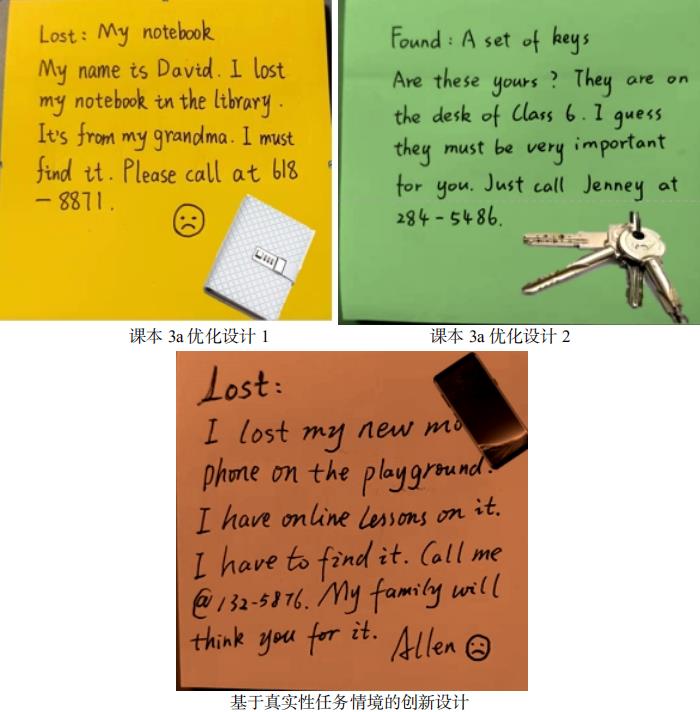 Lost: My notebook
My name is David. I lost
my notebook in the library.
It's from my grandma. I must
find it. Please call at 618
-8871.
Found: A set of keys
Are these yours? They are on
the desk of Class 6. I guess
they must be very important
for you. Just call Jenney at
284-5486.
课本 3a 优化设计 1
课本 3a 优化设计 2
Lost:
I lost my new mo
phone on the playground.
I have online lessons on it.
I have to find it. Call me
@132-5876. My family will
think you for it.
Allen
基于真实性任务情境的创新设计